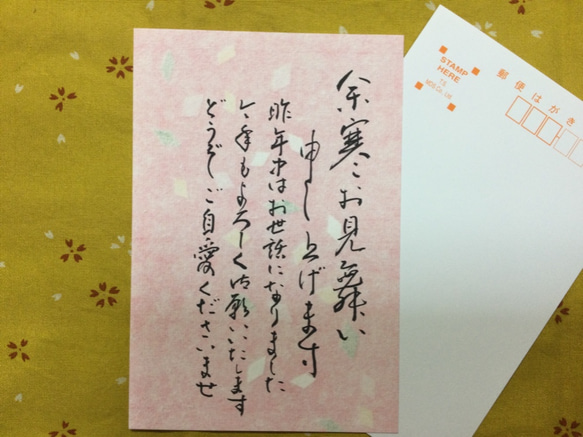 余寒お見舞い
申し上げます
昨年中はお世話になりました
今年もよろしく御願いいたします
どうぞご自愛くださいませ
郵便はがき
STAMP
HERE